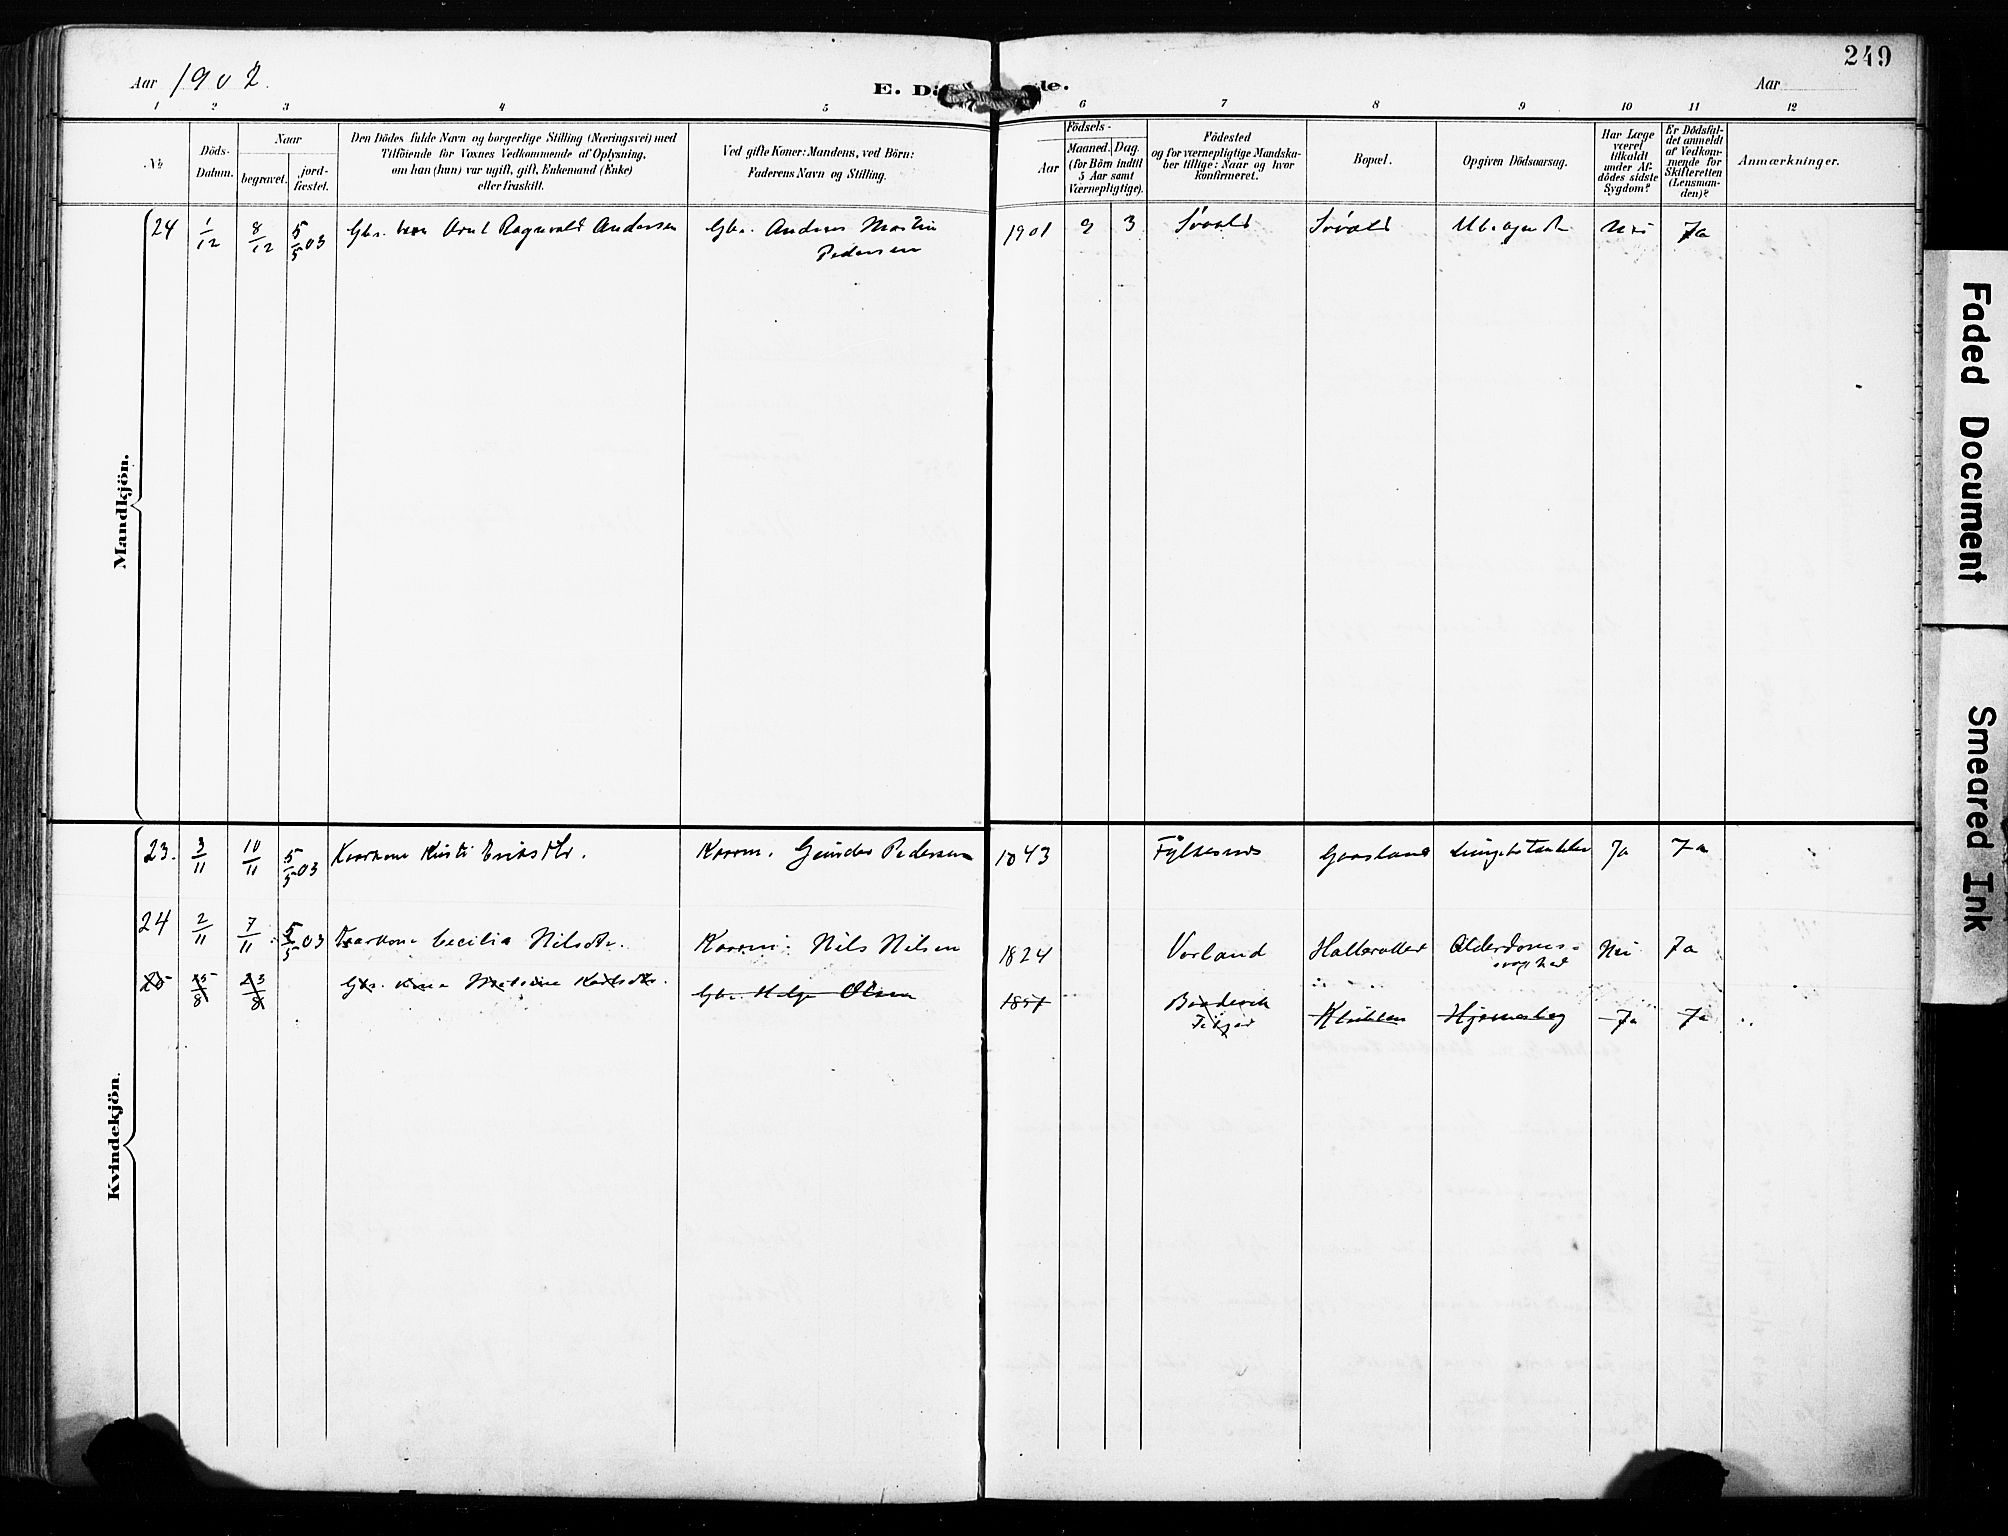 249
Aar 1902.
E. D
de.
Aar
1 2 3 4 5 6 7 8 9 10 11 12
№
Döds-Datum.
Naar
begravet.
jord-fæstet.
Den Dödes fulde Navn og borgerlige Stilling (Næringsvei) med
Tilföiende for Voxnes Vedkommende af Oplysning,
om han (hun) var ugift, gift, Enkemand (Enke)
eller fraskilt.
Ved gifte Koner: Mandens, ved Börn:
Faderens Navn og Stilling.
Födsels-
Aar
Maaned. Dag.
(for Börn indtil
5 Aar samt
Værnepligtige).
Födested
og for værnepligtige Mandska-
ber tillige: Naar og hvor
konfirmeret.
Bopæl.
Opgiven Dödsaarsag.
Har Læge
været
tilkaldt
under Af-
dödes sidste
Sygdom?
Er Dödsfal-
det anmeldt
af Vedkom-
mende for
Skifteretten
(Lensman-
den)?
Anmærkninger.
Mandkjön.
24 1/12 8/12 5/5 03 Gbr. Arnt Ragnvald Andersen Gbr. Anders Martin 1901 9 3 Nei Ja
Pedersen
Kvindekjön.
23. 3/11 10/11 5/5 03 Kaarkone Kirsti Eriksdtr. Kaarm. Gunder Pedersen 1843 Fylkesnes Gaasland Ja Ja
24 2/11 7/11 5/5 03 Kaarkone Cecilia Nilsdtr. Kaarm. Nils Nilsen 1824 Vorland Alderdoms- Nei Ja
svaghed
25 25/8 Gbr. kone Gbr. Helge Olsen 1851 Ja Ja
Fitjar
Faded Document
Smeared Ink